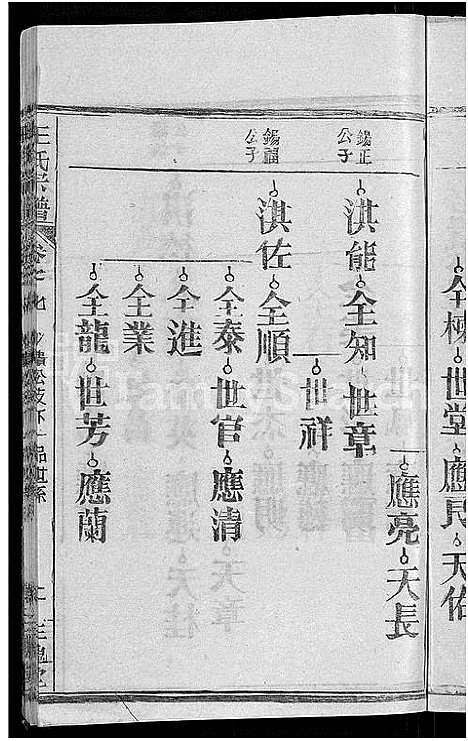 全棟 世堂 應民 天佑
應亮 天長
錫正公子
洪能 全知 世章
世祥
錫福公子
洪佐 全順
全泰 世官 應清
全進
全業
全龍 世芳 應蘭
王氏宗譜